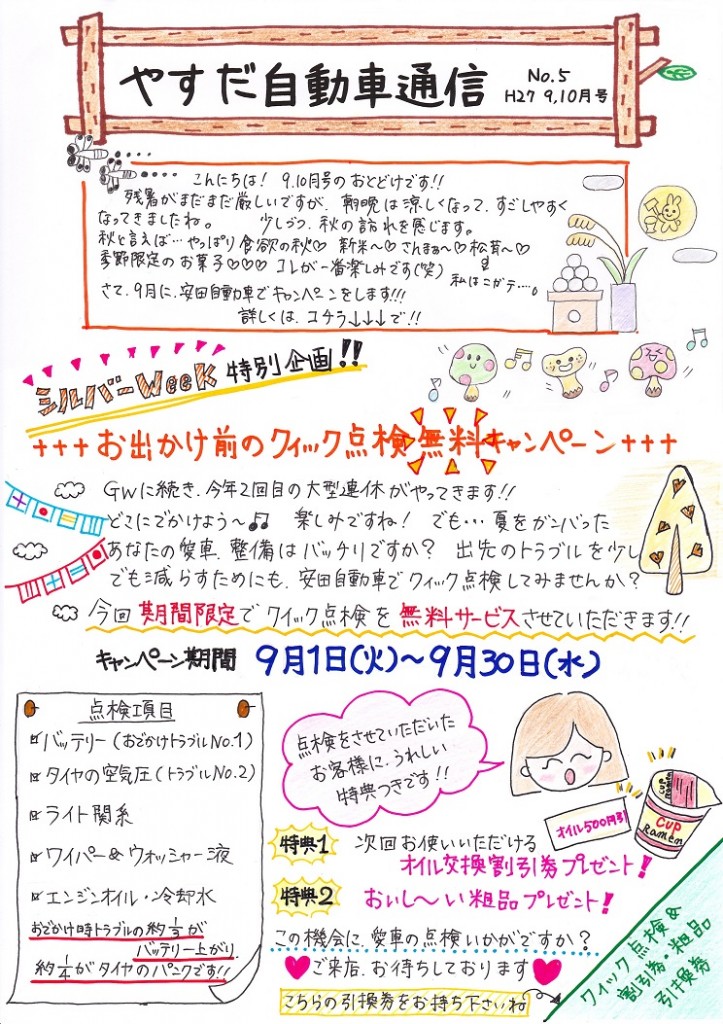 やすだ自動車通信
No.5
H27 9,10月号
こんにちは! 9.10月号のおとどけです!!
残暑がまだまだ厳しいですが、朝晩は涼しくなって、すごしやすく
なってきましたね。 少しづつ、秋の訪れを感じます。
秋と言えば…やっぱり食欲の秋♡ 新米〜♡さんまぁ〜♡松茸〜♡
季節限定のお菓子♡♡♡ コレが一番楽しみです(笑)
私はニガテ…。
さて、9月に、安田自動車でキャンペーンをします!!!
詳しくは、コチラ↓↓↓で!!
シルバーWeeK 特別企画!!
+++お出かけ前のクィック点検無料キャンペーン+++
GWに続き、今年2回目の大型連休がやってきます!!
どこにでかけよう〜♫ 楽しみですね! でも…夏をガンバった
あなたの愛車、整備はバッチリですか? 出先のトラブルを少し
でも減らすためにも、安田自動車でクィック点検してみませんか?
今回期間限定でクィック点検を無料サービスさせていただきます!!
キャンペーン期間 9月1日(火)〜9月30日(水)
点検項目
☑バッテリー(おでかけトラブルNo.1)
☑タイヤの空気圧(トラブルNo.2)
☑ライト関系
☑ワイパー&ウォッシャー液
☑エンジンオイル・冷却水
おでかけ時トラブルの約1/3が
バッテリー上がり、
約1/4がタイヤのパンクです!!
点検をさせていただいた
お客様に、うれしい
特典つきです!!
オイル500円引
cup ramen
Cup Ramen
特典1 次回お使いいただける
オイル交換割引券プレゼント!
特典2 おいし〜い粗品プレゼント!
この機会に、愛車の点検いかがですか?
♥ご来店、お待ちしております♥
こちらの引換券をお持ち下さいね
クィック点検&
割引券・粗品
引換券